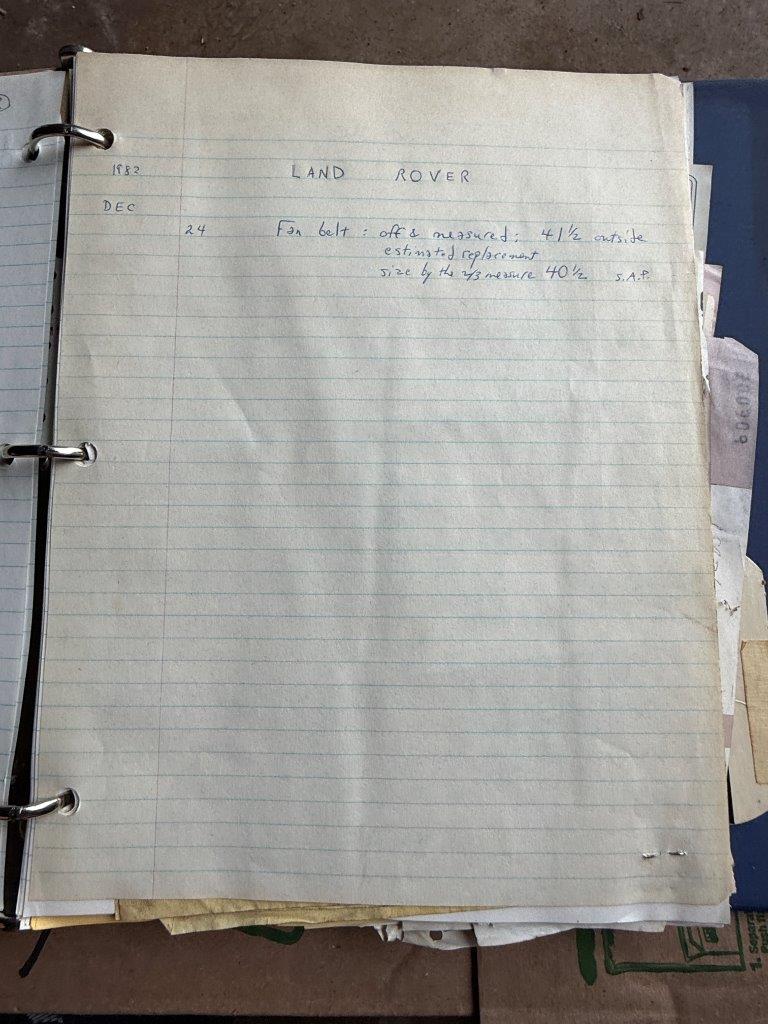 1982 LAND ROVER
DEC
24 Fan belt : off & measured; 41 1/2 outside
estimated replacement
size by the 2/3 measure 40 1/2 S.A.P.